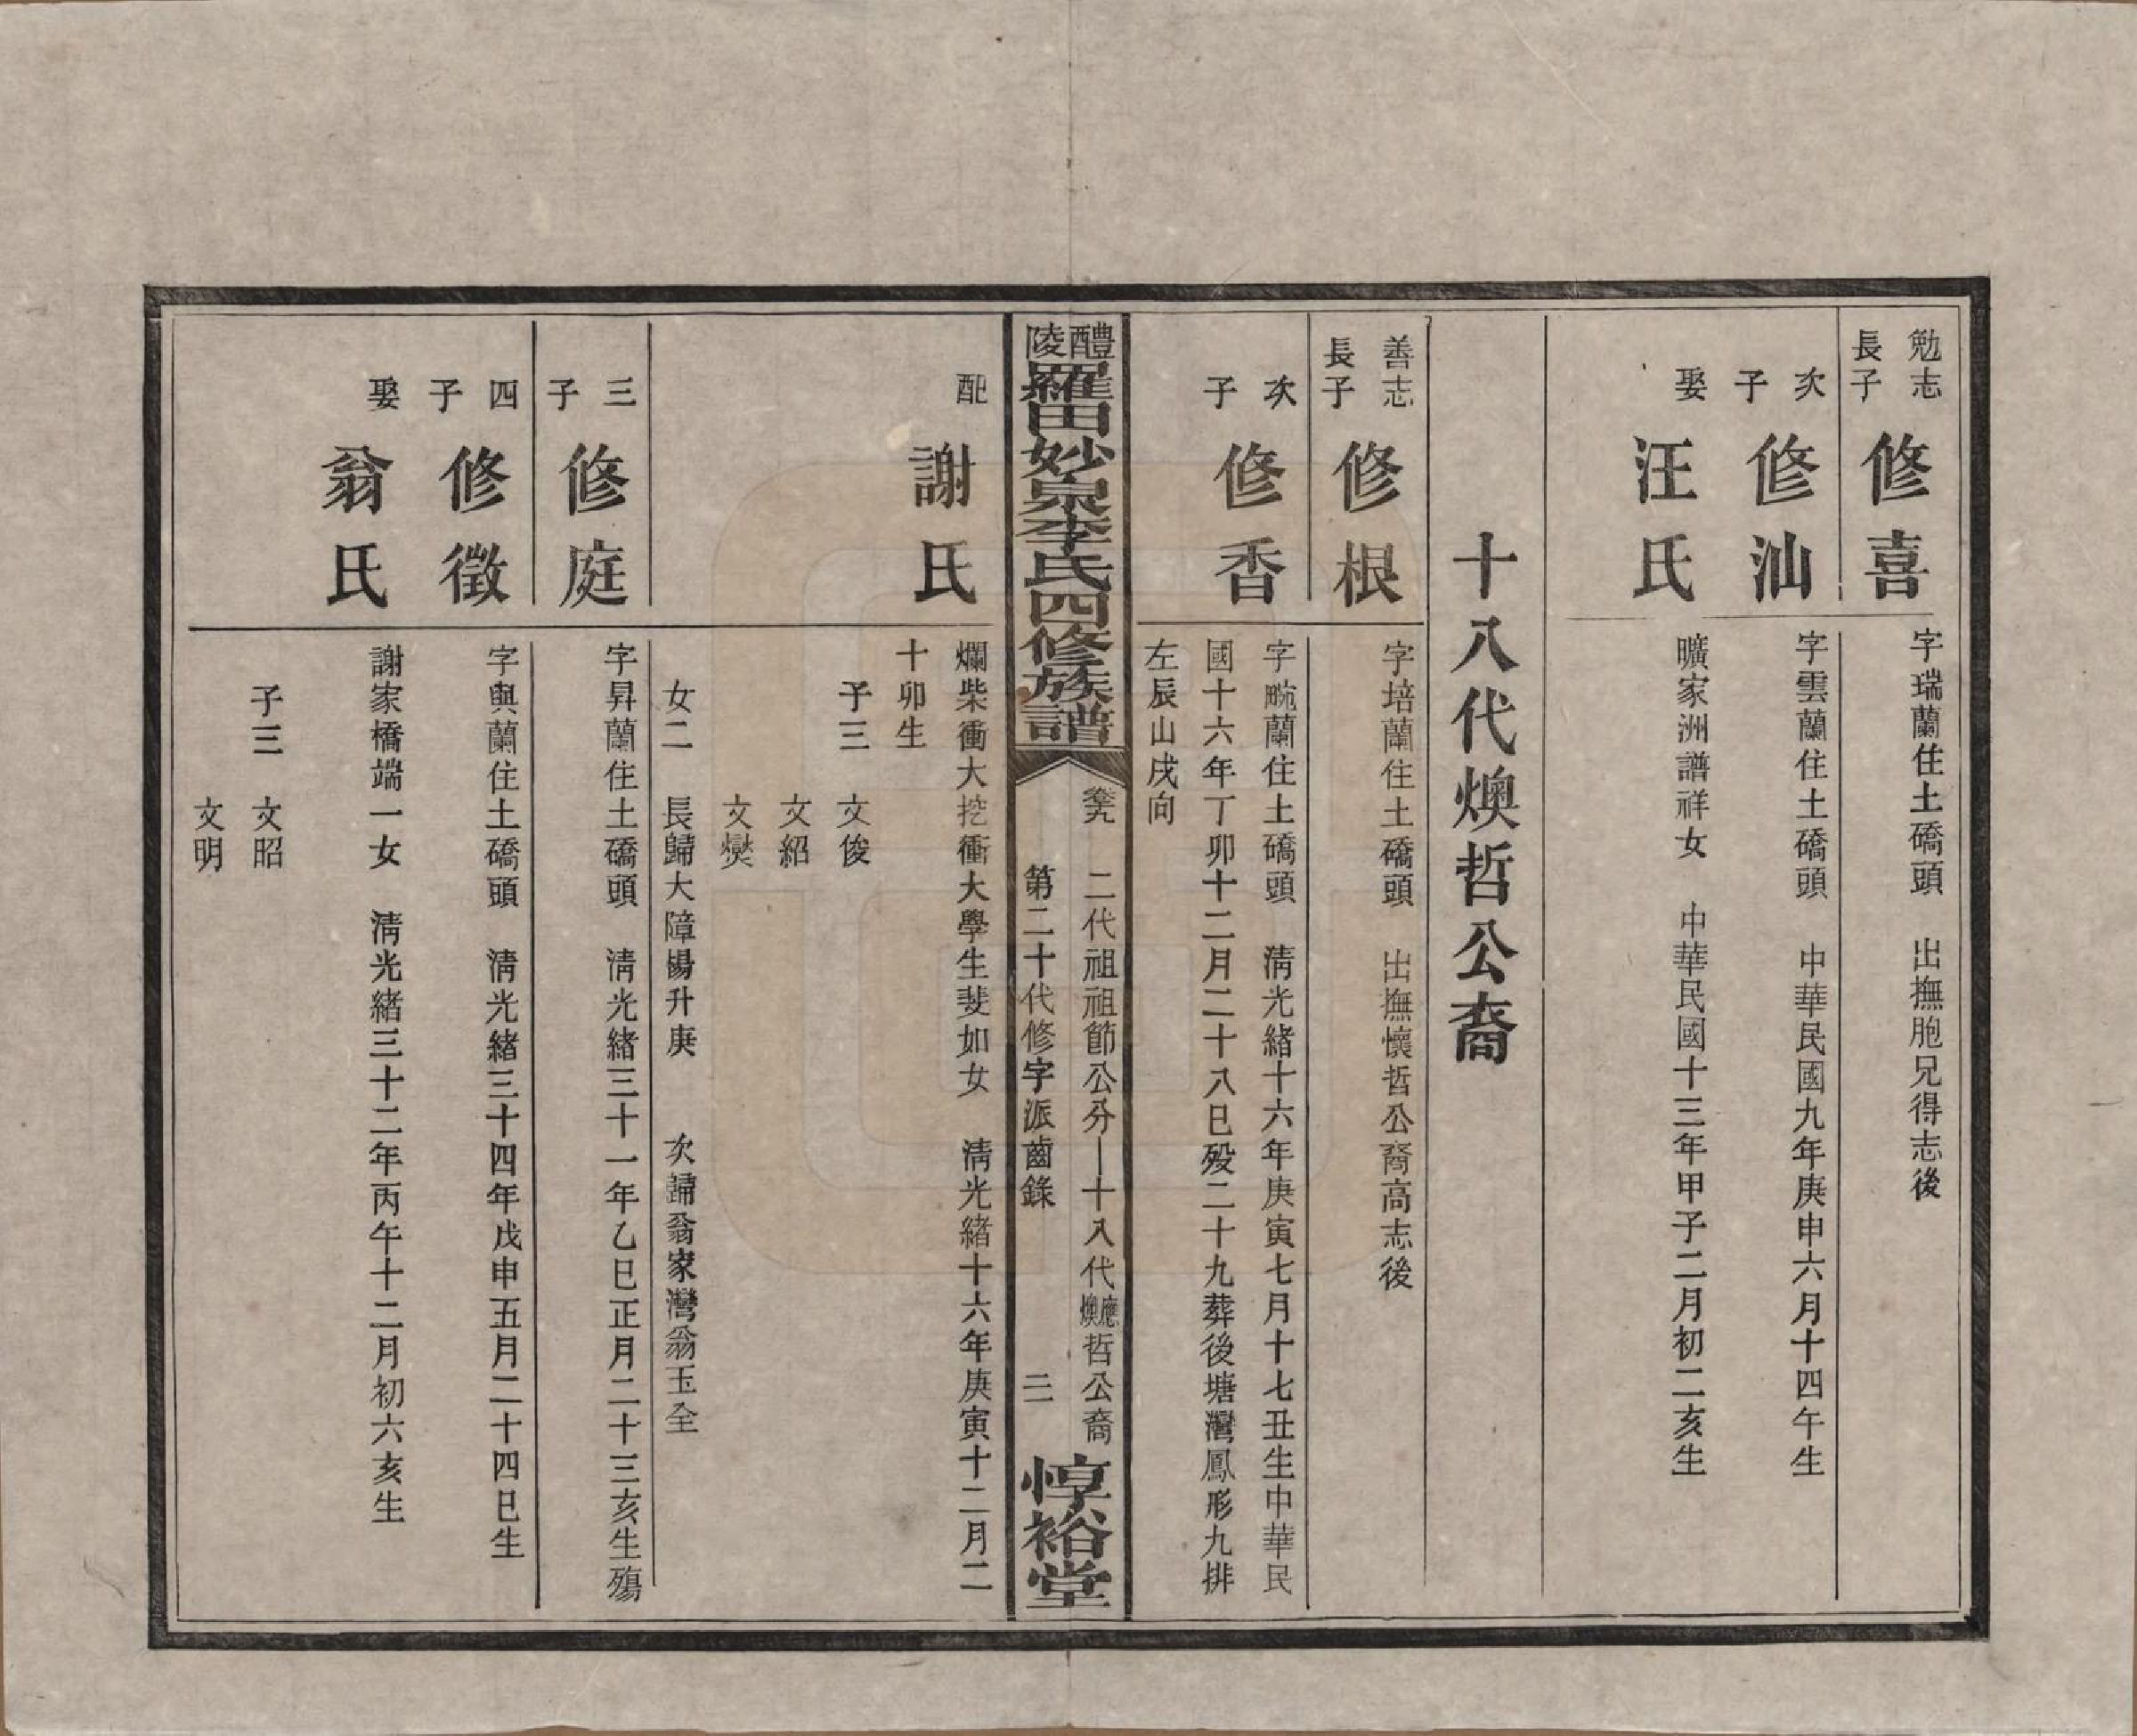 勉志
長子
修喜
字瑞蘭住土礄頭　出撫胞兄得志後
次
子
修汕
字雲蘭住土礄頭　中華民國九年庚申六月十四午生
娶
汪氏
曠家洲譜祥女　中華民國十三年甲子二月初二亥生
十八代煥哲公裔
善志
長子
修根
字培蘭住土礄頭　出撫懷哲公裔高志後
次
子
修香
字畹蘭住土礄頭　清光緒十六年庚寅七月十七丑生中華民
國十六年丁卯十二月二十八巳歿二十九葬後塘灣鳳形九排
左辰山戌向
醴陵羅田妙泉李氏四修族譜
卷九　二代祖祖節公分—十八代應煥哲公裔
第二十代修字派齒錄　二
惇裕堂
配
謝氏
爛柴衝大挖衝大學生斐如女　清光緒十六年庚寅十二月二
十卯生
子三　文俊
文紹
文爕
女二　長歸大障楊升庚　次歸翁家灣翁玉全
三
子
修庭
字昇蘭住土礄頭　清光緒三十一年乙巳正月二十三亥生殤
四
子
修徵
字與蘭住土礄頭　清光緒三十四年戊申五月二十四巳生
娶
翁氏
謝家橋端一女　清光緒三十二年丙午十二月初六亥生
子三　文昭
文明